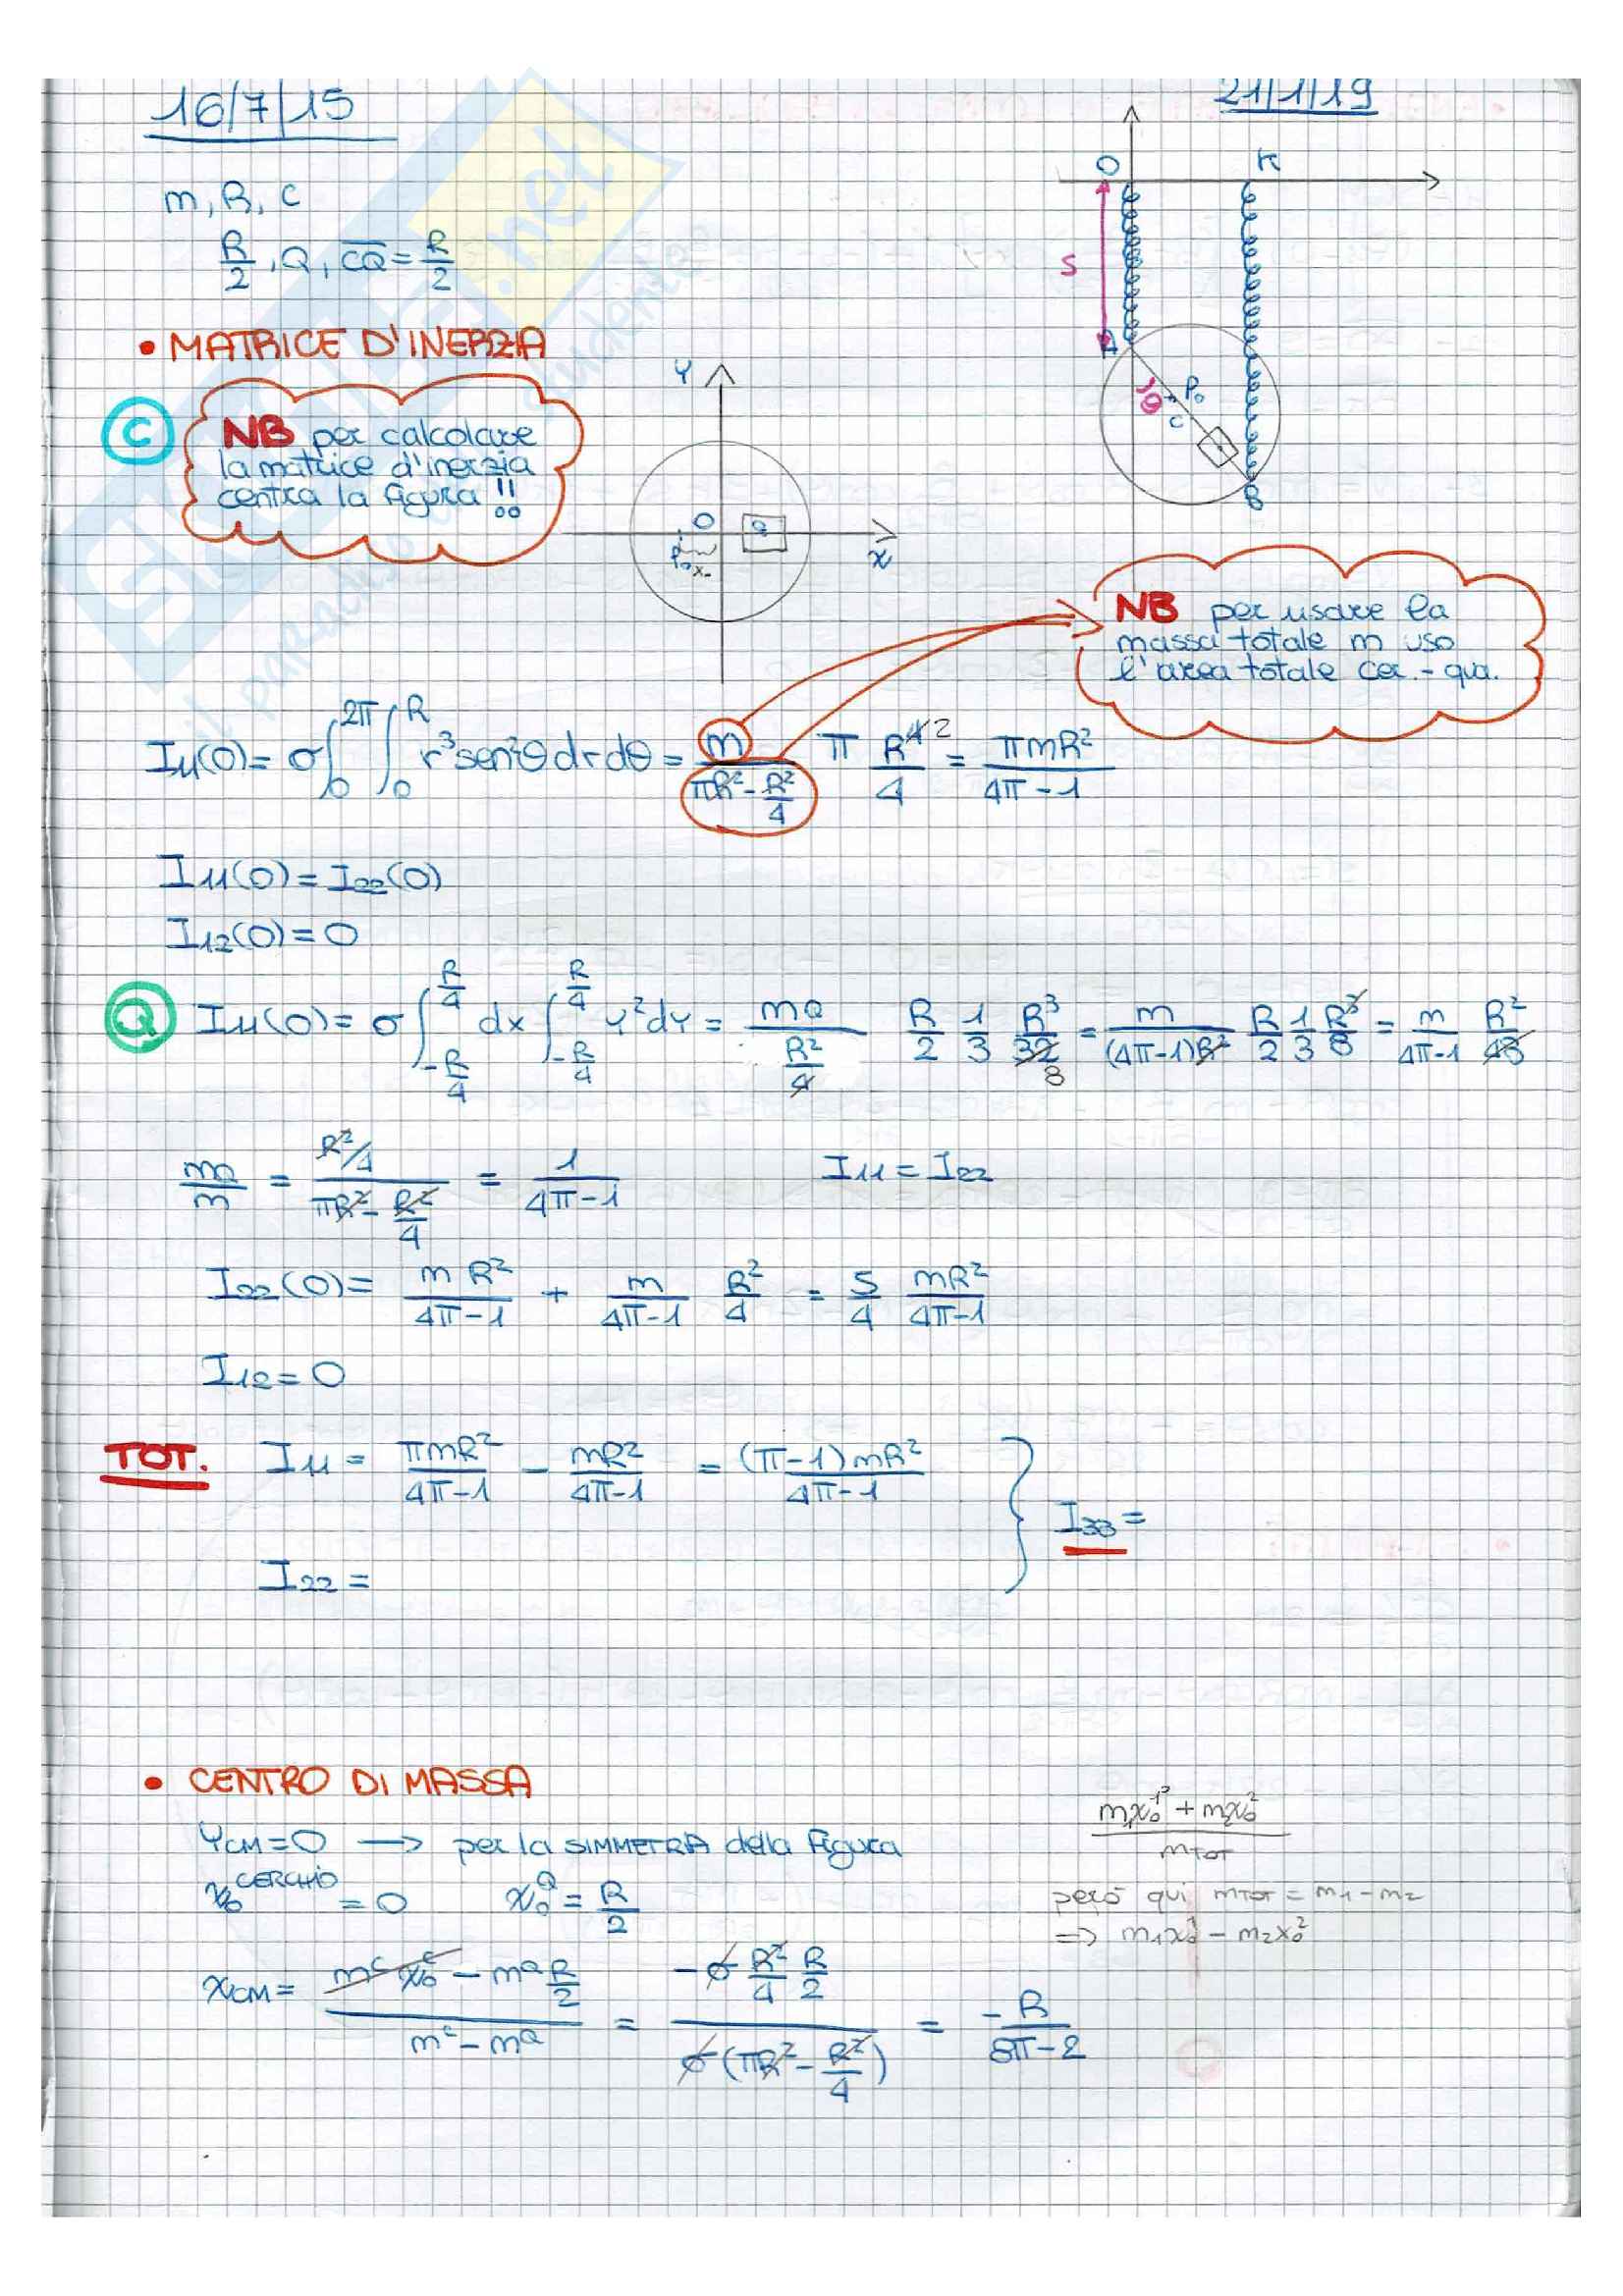 16/7/15
21/1/19
m, R, C
R/2, Q, CQ = R/2
O K
S
A
θ P₀
C
B
• MATRICE D'INERZIA
C
NB per calcolare
la matrice d'inerzia
centra la figura!!
Y
O Q
P₀ x
NB per usare la
massa totale m uso
l'area totale cer. - qua.
I₁₁(0) = σ ∫₀^2π ∫₀^R r³ sen²θ dr dθ = m/(πR² - R²/4) π R⁴²/4 = πmR²/(4π-1)
I₁₁(0) = I₂₂(0)
I₁₂(0) = 0
Q I₁₁(0) = σ ∫_-R/4^R/4 dx ∫_-R/4^R/4 y² dy = mQ/(R²/4) R/2 1/3 R³/32 8 = m/((4π-1)R²) R/2 1/3 R³/8 = m/(4π-1) R²/48
mQ/m = (R²/4)/(πR² - R²/4) = 1/(4π-1) I₁₁ = I₂₂
I₂₂(0) = m R²/(4π-1) + m/(4π-1) R²/4 = 5/4 mR²/(4π-1)
I₁₂ = 0
TOT. I₁₁ = πmR²/(4π-1) - mR²/(4π-1) = (π-1)mR²/(4π-1)
I₃₃ =
I₂₂ =
• CENTRO DI MASSA
(m₁x₀¹ + m₂x₀²)/mTOT
YCM = 0 → per la SIMMETRIA della figura
x₀^CERCHIO = 0 x₀^Q = R/2
però qui mTOT = m₁ - m₂
⇒ m₁x₀¹ - m₂x₀²
xCM = (m^c x₀^c - m^Q R/2)/(m^c - m^Q) = (-σ R²/4 R/2)/(σ(πR² - R²/4)) = -R/(8π-2)